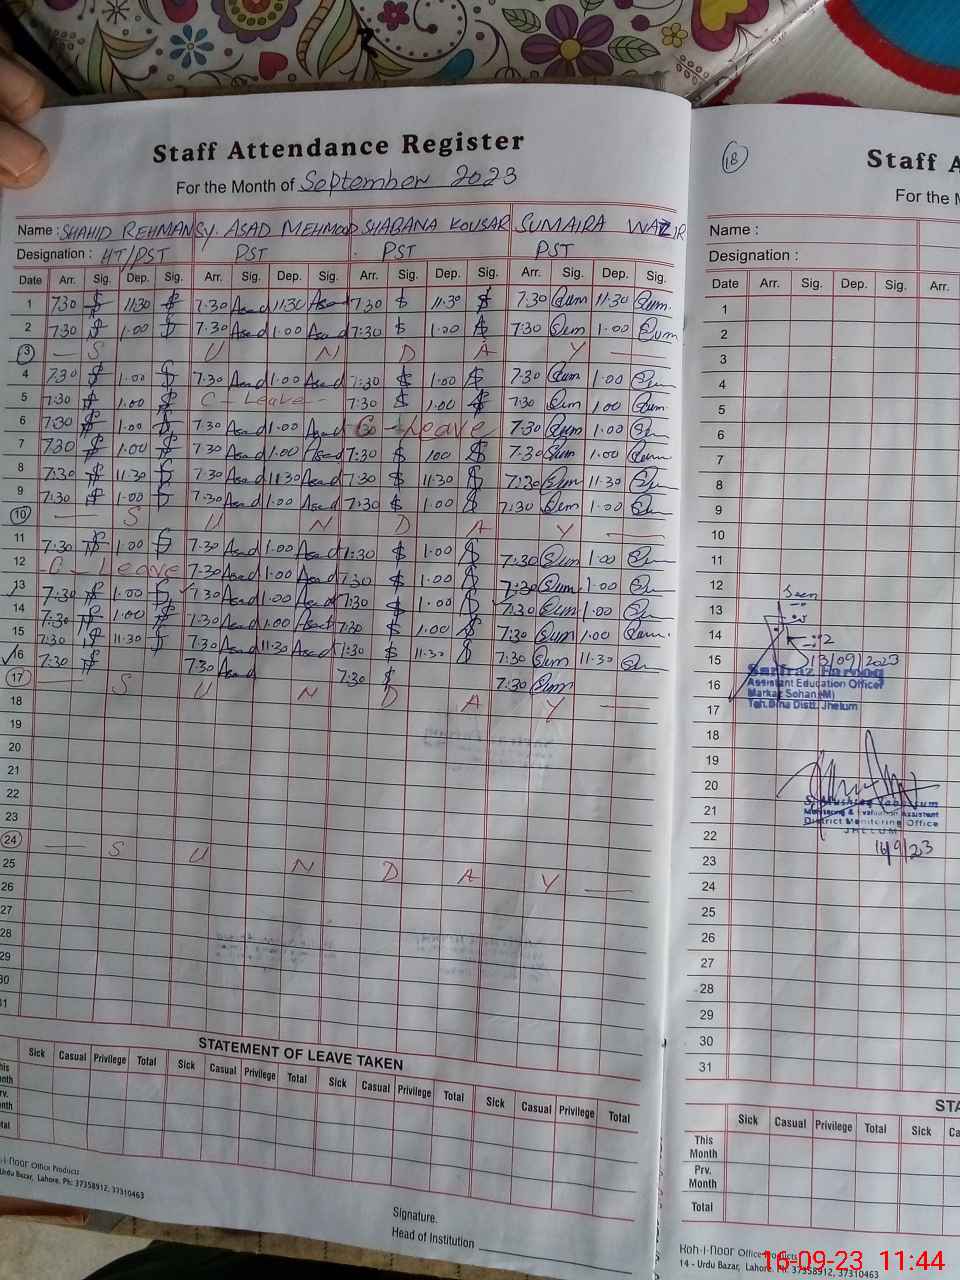 Staff Attendance Register
For the Month of September 2023
Name : SHAHID REHMAN SY. ASAD MEHMOOD SHABANA KOUSAR SUMAIRA WAZIR
Designation : HT/PST PST PST PST
Date Arr. Sig. Dep. Sig. Arr. Sig. Dep. Sig. Arr. Sig. Dep. Sig. Arr. Sig. Dep. Sig.
1 7:30 11:30 7:30 Asad 11:30 Asad 7:30 11:30 7:30 Sum 11:30 Sum
2 7:30 1.00 7:30 Asad 1.00 Asad 7:30 1.00 7:30 Sum 1.00 Sum
3 — S U N D A Y —
4 7:30 1.00 7:30 Asad 1.00 Asad 7:30 1.00 7:30 Sum 1.00
5 7:30 1.00 C - Leave - 7:30 1.00 7:30 Sum 1.00 Sum
6 7:30 1.00 7:30 Asad 1.00 Asad C - Leave 7:30 Sum 1.00
7 7:30 1.00 7:30 Asad 1.00 Asad 7:30 1.00 7:30 Sum 1.00 Sum
8 7:30 11:30 7:30 Asad 11:30 Asad 7:30 11:30 7:30 Sum 11:30
9 7:30 1.00 7:30 Asad 1.00 Asad 7:30 1.00 7:30 Sum 1.00
10 — S U N D A Y —
11 7:30 1.00 7:30 Asad 1.00 Asad 7:30 1.00 7:30 Sum 1.00
12 - C - Leave 7:30 Asad 1.00 Asad 7:30 1.00 7:30 Sum 1.00
13 7:30 1.00 7:30 Asad 1.00 Asad 7:30 1.00 7:30 Sum 1.00
14 7:30 1.00 7:30 Asad 1.00 Asad 7:30 1.00 7:30 Sum 1.00 Sum
15 7:30 11:30 7:30 Asad 11:30 Asad 7:30 11:30 7:30 Sum 11:30
16 7:30 7:30 Asad 7:30 7:30 Sum
17 — S U N D A Y —
18
19
20
21
22
23
24 — S U N D A Y —
25
26
27
28
29
30
31
STATEMENT OF LEAVE TAKEN
Sick Casual Privilege Total Sick Casual Privilege Total Sick Casual Privilege Total Sick Casual Privilege Total
Office Products
Urdu Bazar, Lahore. Ph: 37358912, 37310463
Signature.
Head of Institution
18
Staff A
For the M
Name :
Designation :
Date Arr. Sig. Dep. Sig. Arr.
1
2
3
4
5
6
7
8
9
10
11
12
13
14
15
16
17
18
19
20
21
22
23
24
25
26
27
28
29
30
31
Seen
13/09/2023
Assistant Education Officer
Markaz Sohan (M)
Teh. Dina Distt. Jhelum
Monitoring & Evaluation Assistant
District Monitoring Office
JHELUM
16/9/23
STA
Sick Casual Privilege Total Sick Ca
This Month
Prv. Month
Total
Koh-i-Noor Office Products
14 - Urdu Bazar, Lahore. Ph: 37358912, 37310463
16-09-23 11:44